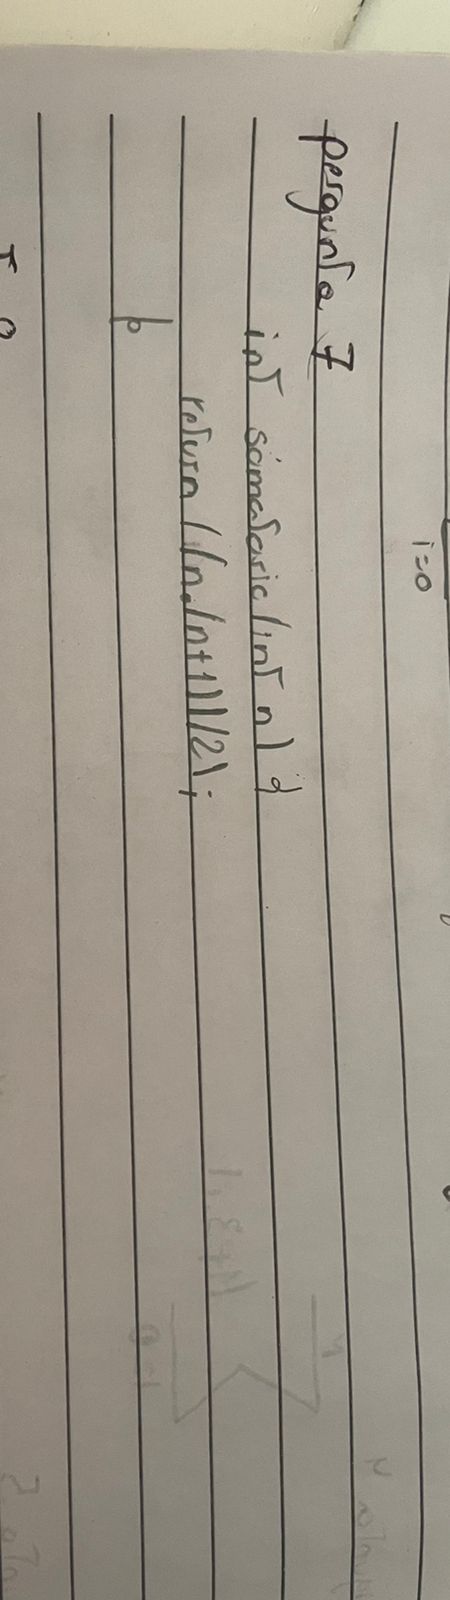 i=0
pergunta 7
int somatorio(int n) {
return ((n.(n+1))/2);
}